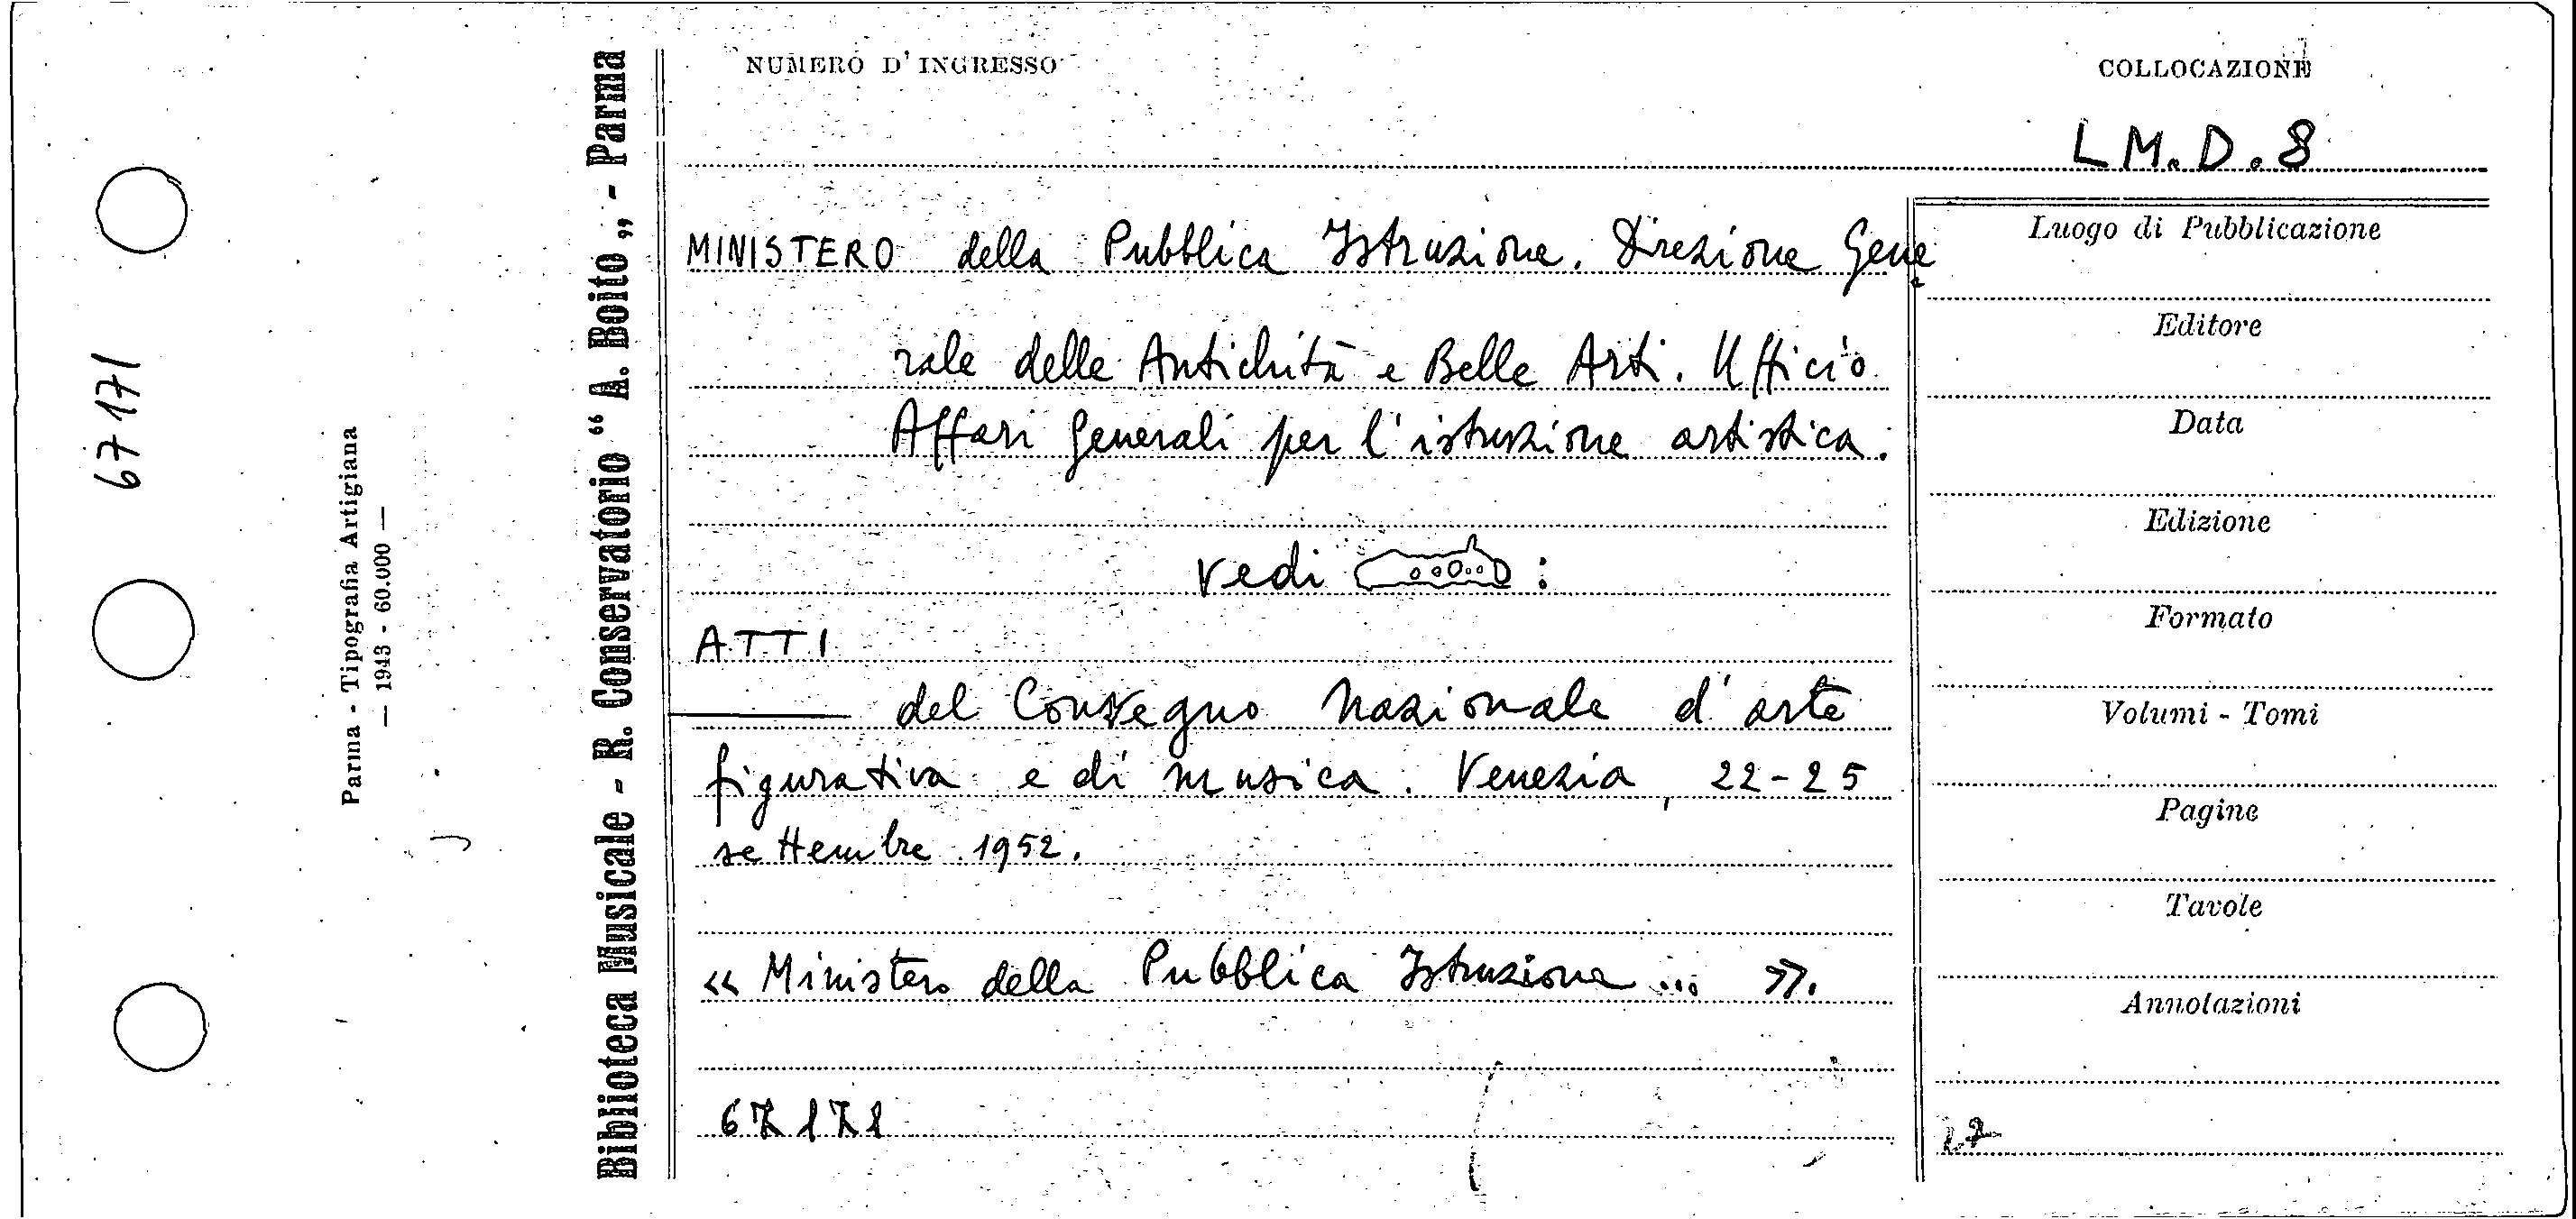 NUMERO D'INGRESSO
COLLOCAZIONE
LM.D.8
MINISTERO della Pubblica Istruzione. Direzione Gene
rale delle Antichità e Belle Arti. Ufficio
Affari generali per l'istruzione artistica.
vedi :
ATTI
del Convegno Nazionale d'arte
figurativa e di musica. Venezia, 22-25
settembre 1952.
« Ministero della Pubblica Istruzione ... ».
67171
Luogo di Pubblicazione
Editore
Data
Edizione
Formato
Volumi - Tomi
Pagine
Tavole
Annotazioni
Biblioteca Musicale - R. Conservatorio “ A. Boito „ - Parma
Parma - Tipografia Artigiana
— 1943 - 60.000 —
67171